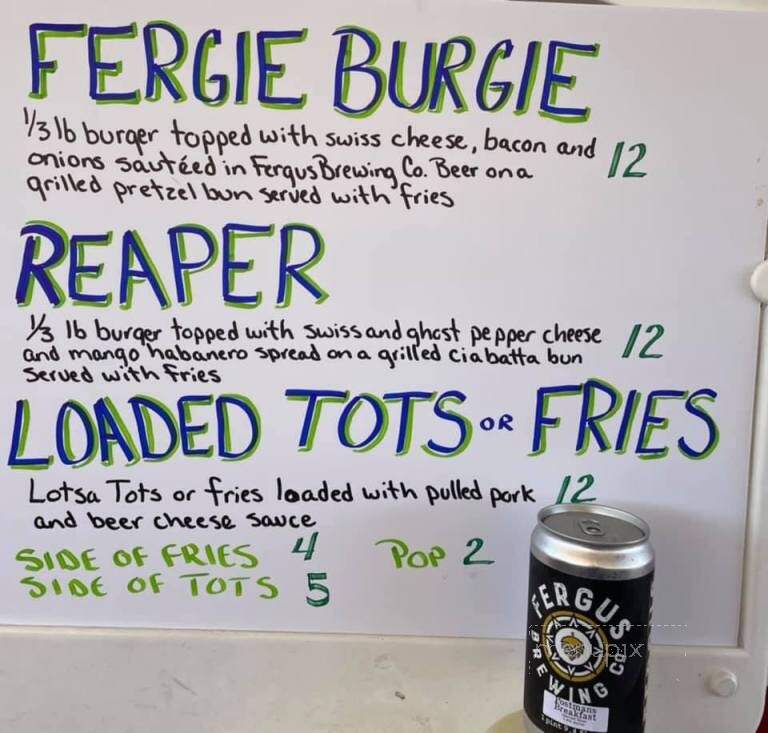 FERGIE BURGIE
1/3 lb burger topped with swiss cheese, bacon and
onions sautéed in Fergus Brewing Co. Beer on a
grilled pretzel bun served with fries
12
REAPER
1/3 lb burger topped with swiss and ghost pepper cheese
and mango habanero spread on a grilled ciabatta bun
served with fries
12
LOADED TOTS OR FRIES
Lotsa Tots or fries loaded with pulled pork
and beer cheese sauce
12
SIDE OF FRIES 4
POP 2
SIDE OF TOTS 5
FERGUS
BREWING CO
Postmans
Breakfast
1 pint